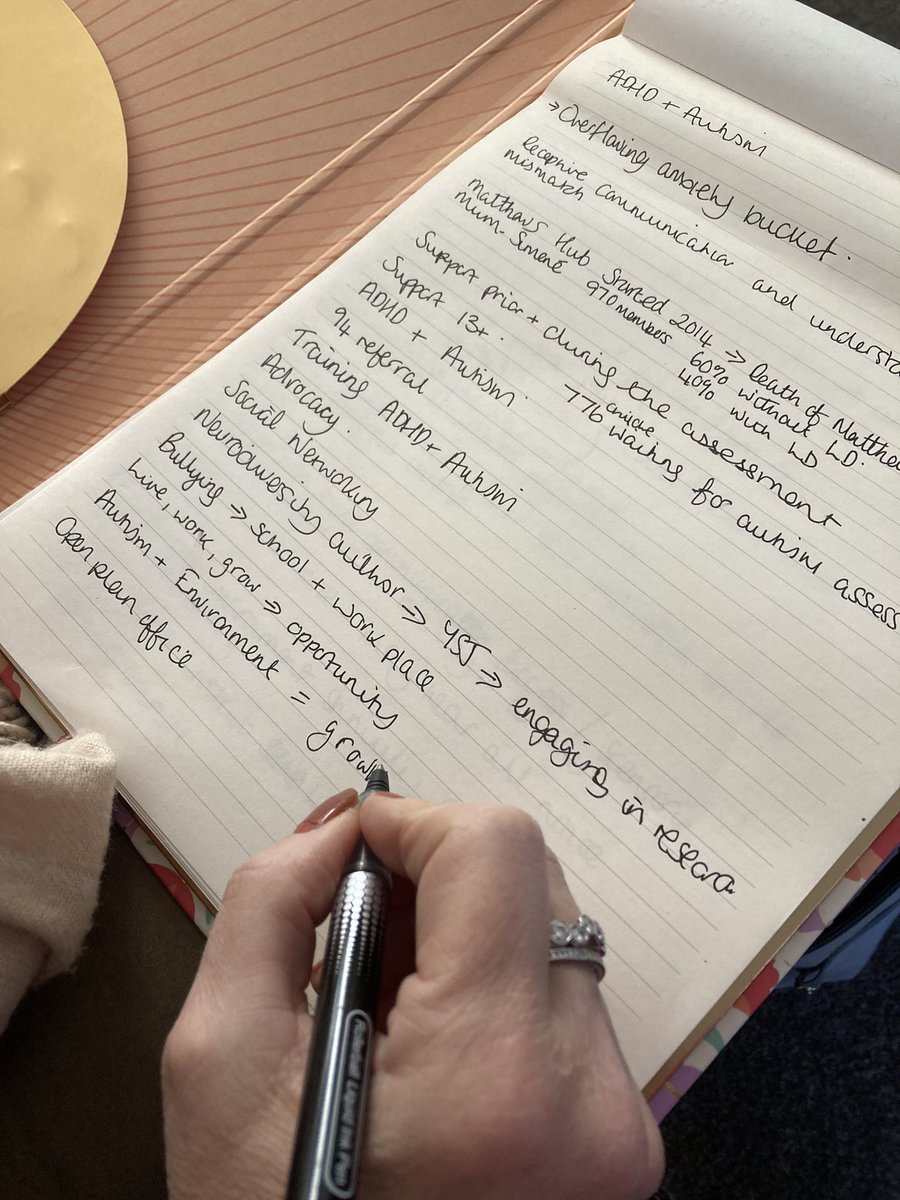 ADHD + Autism
→ Overflowing anxiety bucket.
Receptive communication and understa
mismatch
Matthews Hub Started 2014 → Death of Matthew
Mum- 970 members 60% without LD.
40% with LD
Support prior + during the assessment
Support 13+. 776 waiting for autism assess
ADHD + Autism.
94 referral
Training ADHD + Autism
Advocacy.
Social Networking
Neurodiversity author → YST → engaging in researc
Bullying → school + work place
Live, work, grow → opportunity
Autism + Environment = grow
Open plan office